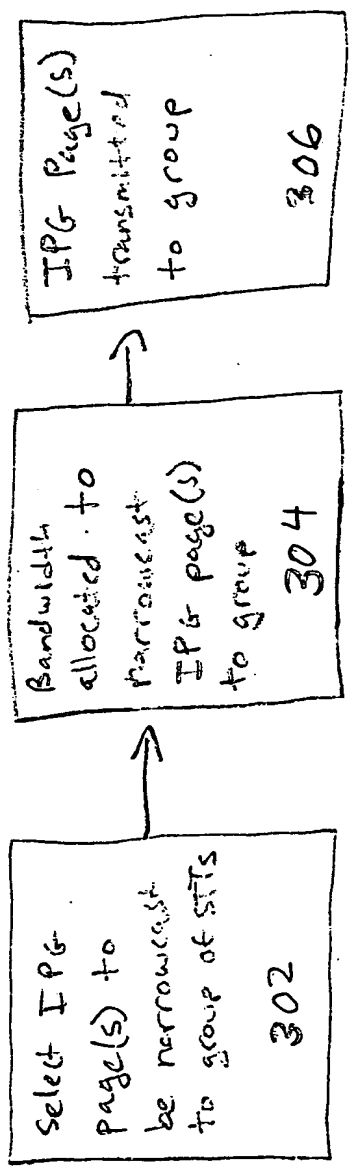 Select IPG
page(s) to
be narrowcast
to group of STTs
302
Bandwidth
allocated to
narrowcast
IPG page(s)
to group
304
IPG Page(s)
transmitted
to group
306